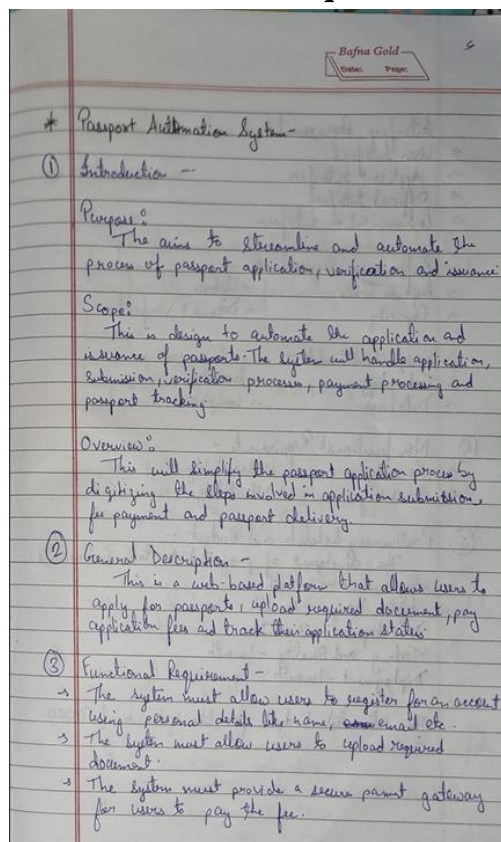 Bafna Gold
Date: Page:
* Passport Automation System -
① Introduction -
Purpose:
The aims to streamline and automate the
process of passport application, verification and issuance
Scope:
This is design to automate the application and
issuance of passports. The system will handle application,
submission, verification processes, payment processing and
passport tracking.
Overview:
This will simplify the passport application process by
digitizing the steps involved in application submission,
fee payment and passport delivery.
② General Description -
This is a web-based platform that allows users to
apply for passports, upload required document, pay
application fees and track their application status
③ Functional Requirement -
→ The system must allow users to register for an account
using personal details like name, email etc.
→ The system must allow users to upload required
document.
→ The system must provide a secure gateway
for users to pay the fee.